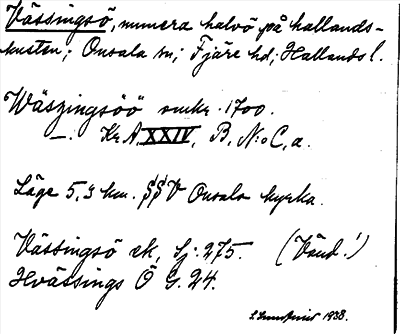 Vässingsö, numera halvö på hallands-
kusten; Onsala sn; Fjäre hd; Hallands l.
Wäszingsöö omkr. 1700.
—. Kr. A. XXIV, B, N:o C, a.
Läge 5,3 km. SSV Onsala kyrka.
Vässingsö ek, Sj. 275. (Vänd!)
Hvässings Ö G. 24.
1938.